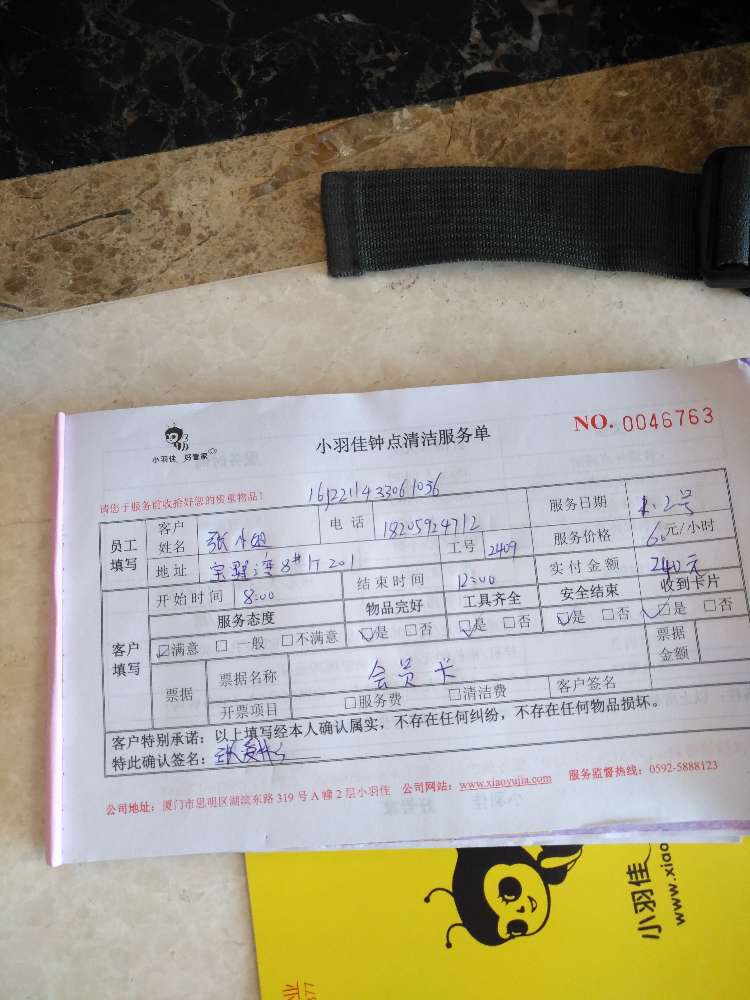 小羽佳 好管家
小羽佳钟点清洁服务单
NO. 0046763
请您于服务前收拾好您的贵重物品!
1612211433061036
员工填写 客户姓名 张小姐 电话 18205924712 服务日期 2号
地址 8# 201 工号 2409 服务价格 60元/小时
客户填写 开始时间 8:00 结束时间 12:00 实付金额 240元
服务态度 物品完好 工具齐全 安全结束 收到卡片
☑满意 □一般 □不满意 ☑是 □否 ☑是 □否 ☑是 □否 ☑是 □否
票据 票据名称 会员卡 票据金额
开票项目 □服务费 □清洁费 客户签名
客户特别承诺:以上填写经本人确认属实,不存在任何纠纷,不存在任何物品损坏。
特此确认签名:
公司地址:厦门市思明区湖滨东路319号A幢2层小羽佳 公司网站:www.xiaoyujia.com 服务监督热线:0592-5888123
小羽佳
www.xiao